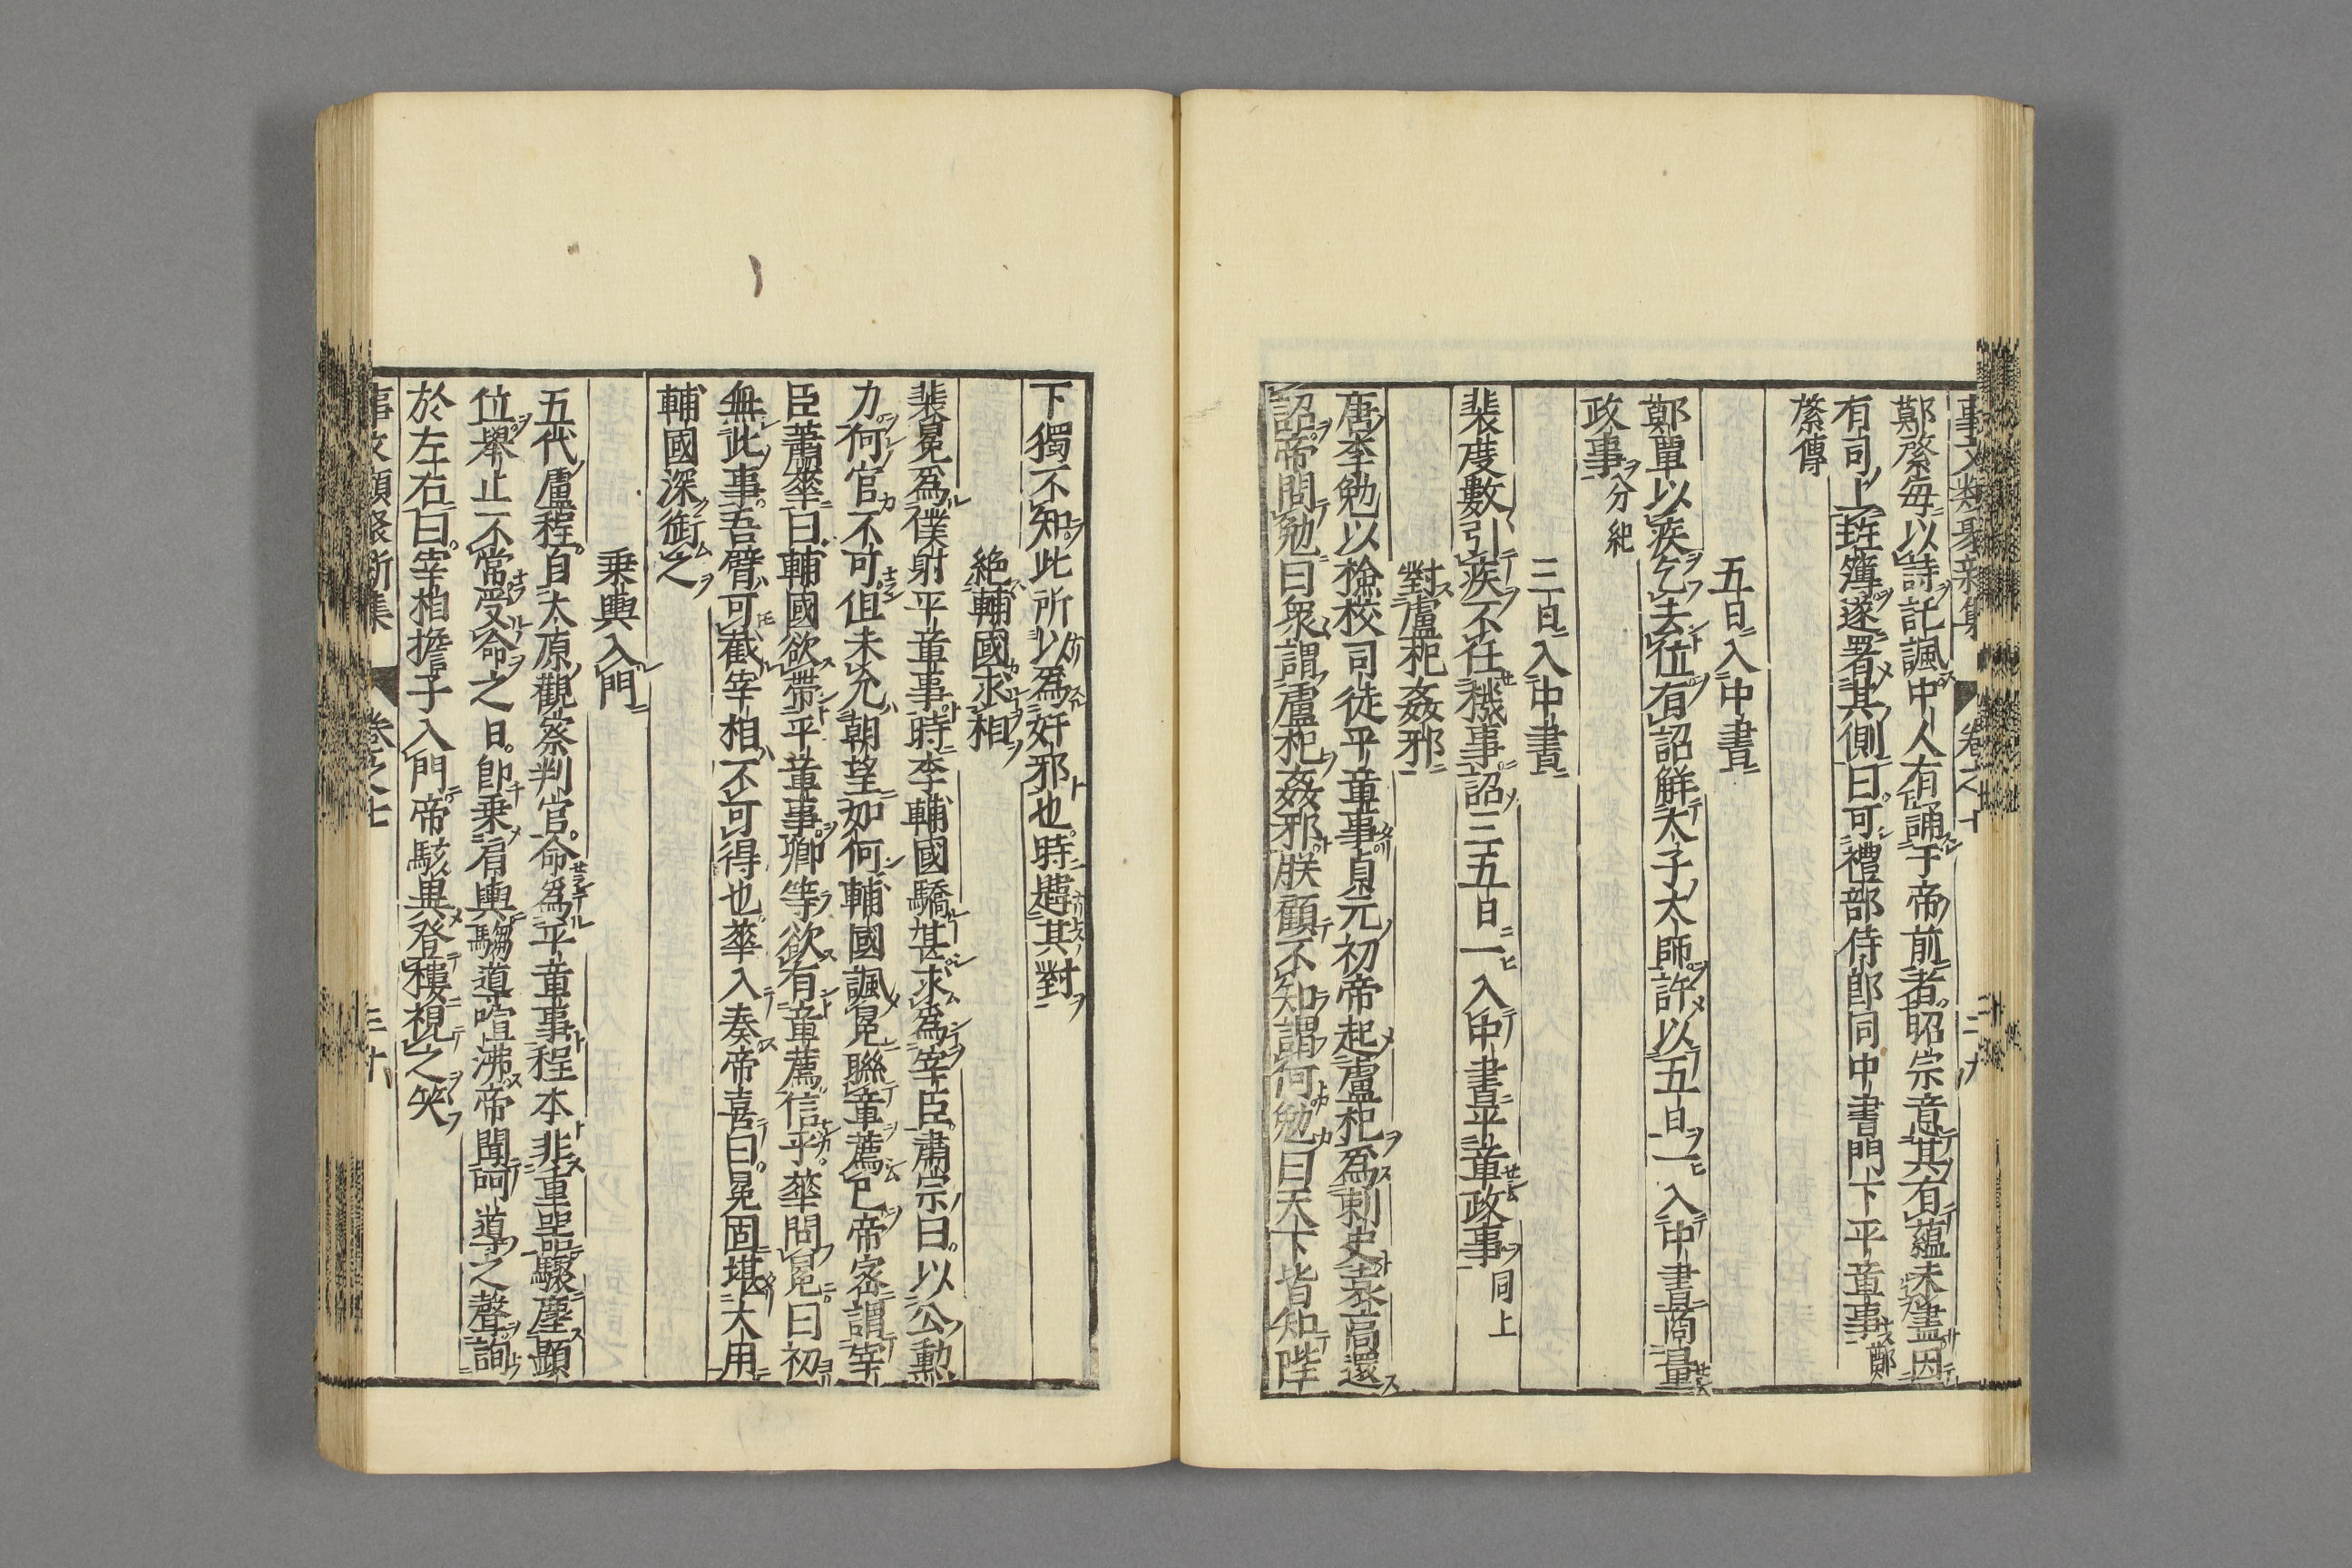 事文類聚新集 卷之七
鄭綮毎以詩託諷中人有誦于帝前者昭宗意其有蘊未盡因
有司上班簿遂署其側曰可禮部侍郎同中書門下平章事鄭
綮傳
五日入中書
鄭覃以疾乞去位有詔解太子太師許以五日一入中書商量
政事分紀
三日入中書
裴度數引疾不任機事詔三五日一入中書平章政事同上
對盧杞姦邪
唐李勉以撿校司徒平章事貞元初帝起盧杞爲刺史袁高還
詔帝問勉曰衆謂盧杞姦邪朕顧不知謂何勉曰天下皆知陛
下獨不知此所以爲奸邪也時韙其對
絶輔國求相
裴冕爲僕射平章事時李輔國驕甚求爲宰臣肅宗曰以公勲
力何官不可但未允朝望如何輔國諷冕聮章薦已帝宻謂宰
臣蕭華曰輔國欲帶平章事卿等欲有章薦信乎華問冕曰初
無此事吾臂可截宰相不可得也華入奏帝喜曰冕固堪大用
輔國深銜之
乗輿入門
五代盧程自太原觀察判官命爲平章事程本非重噐驟塵顯
位舉止不常受命之日即乗肩輿騶導喧沸帝聞訶導之聲詢
於左右曰宰相擔子入門帝駭異登樓視之笑
事文類聚新集 卷之七 三十